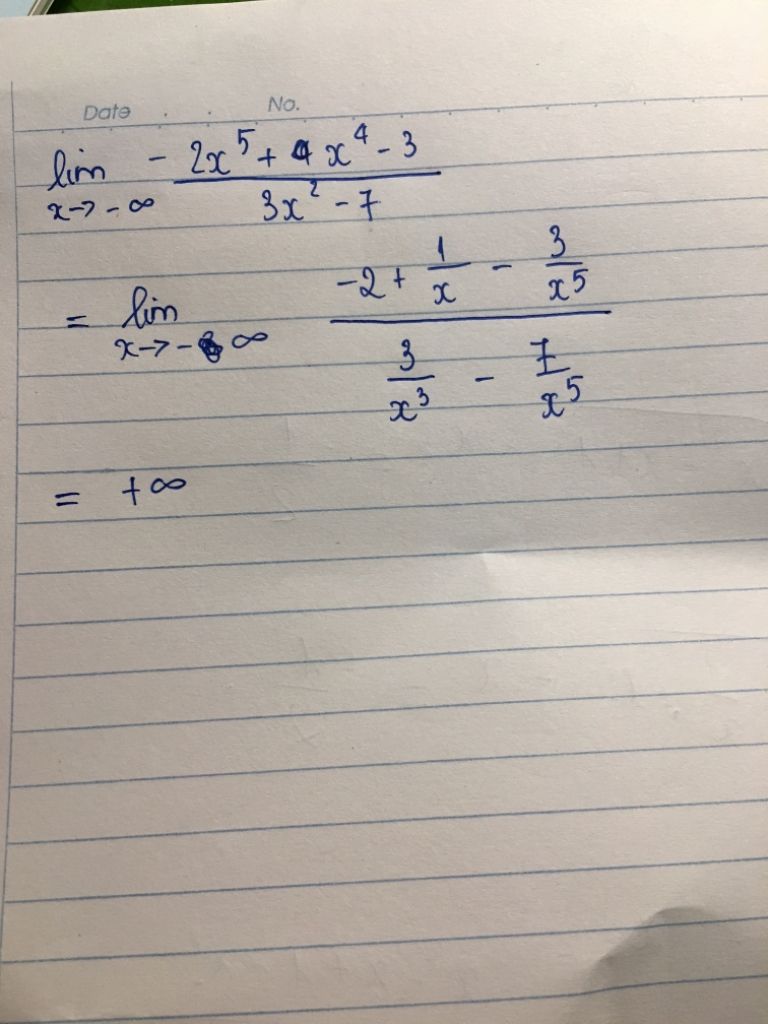 Date No.
lim x→-∞ - 2x⁵ + 4x⁴ - 3 / 3x² - 7
= lim x→-∞ -2 + 1/x - 3/x⁵ / 3/x³ - 7/x⁵
= +∞